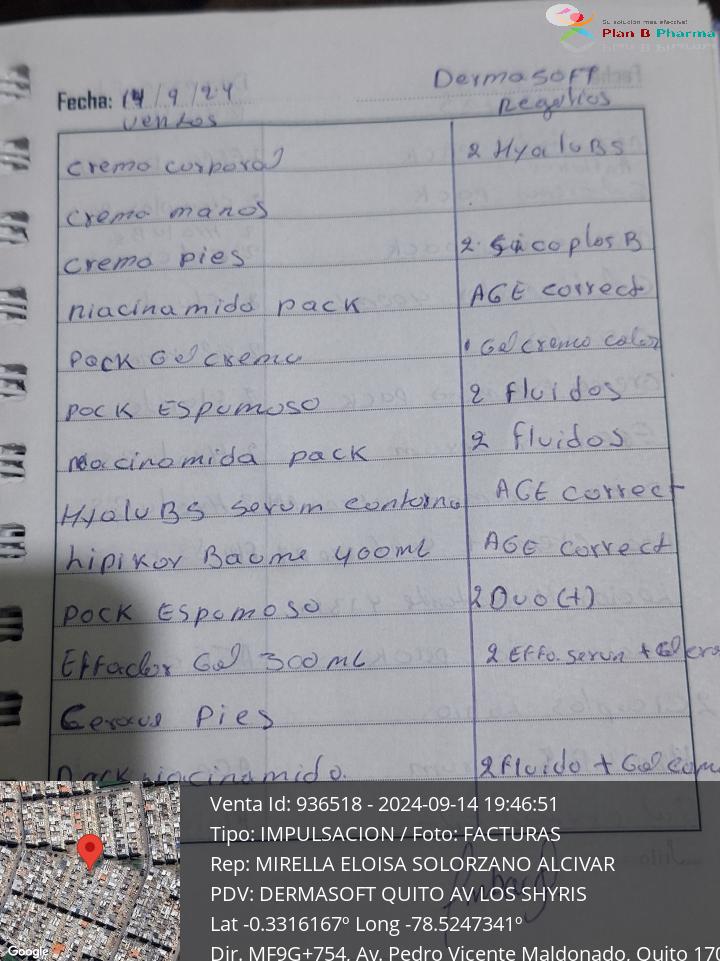 Su solución más efectiva!
Plan B Pharma
Dermasoft
Fecha: 14/9/24
ventas regalos
cremo corporal 2 HyaluBS
cremo manos
cremo pies 2 Sicoplos B
niacinamida pack AGE correct
Pock Gel cremo 1 Gel cremo color
pock Espumoso 2 fluidos
niacinamida pack 2 fluidos
HyaluBS serum contorno AGE correct
lipikar Baume 400ml AGE correct
pock Espomoso 2 Duo(+)
Effaclar Gel 300mL 2 Effa.serun + Gel
Cerave Pies
Pack niacinamida. 2 fluido + Gel
Venta Id: 936518 - 2024-09-14 19:46:51
Tipo: IMPULSACION / Foto: FACTURAS
Rep: MIRELLA ELOISA SOLORZANO ALCIVAR
PDV: DERMASOFT QUITO AV LOS SHYRIS
Lat -0.3316167º Long -78.5247341º
Dir. MF9G+754, Av. Pedro Vicente Maldonado, Quito 170
Google